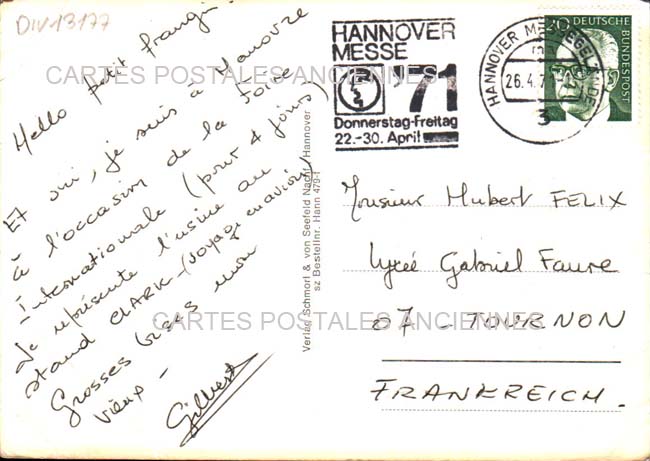 DIV-13177
Hello petit frangin
Et oui, je suis à Hanovre
à l'occasion de la Foire
Internationale (pour 4 jours)
Je représente l'usine au
stand CLARK - (voyage en avion)
Grosses bises mon
vieux -
Gilbert
CARTES POSTALES ANCIENNES
CARTES POSTALES ANCIENNES
Verlag Schmorl & von Seefeld Nachf. Hannover
sz Bestellnr. Hann 479-1
HANNOVER
MESSE
'71
Donnerstag-Freitag
22.-30. April
HANNOVER MESSEGELÄNDE
26.4.7
3
20
DEUTSCHE
BUNDESPOST
Monsieur Hubert FELIX
Lycée Gabriel Faure
07 - TOURNON
FRANKREICH.